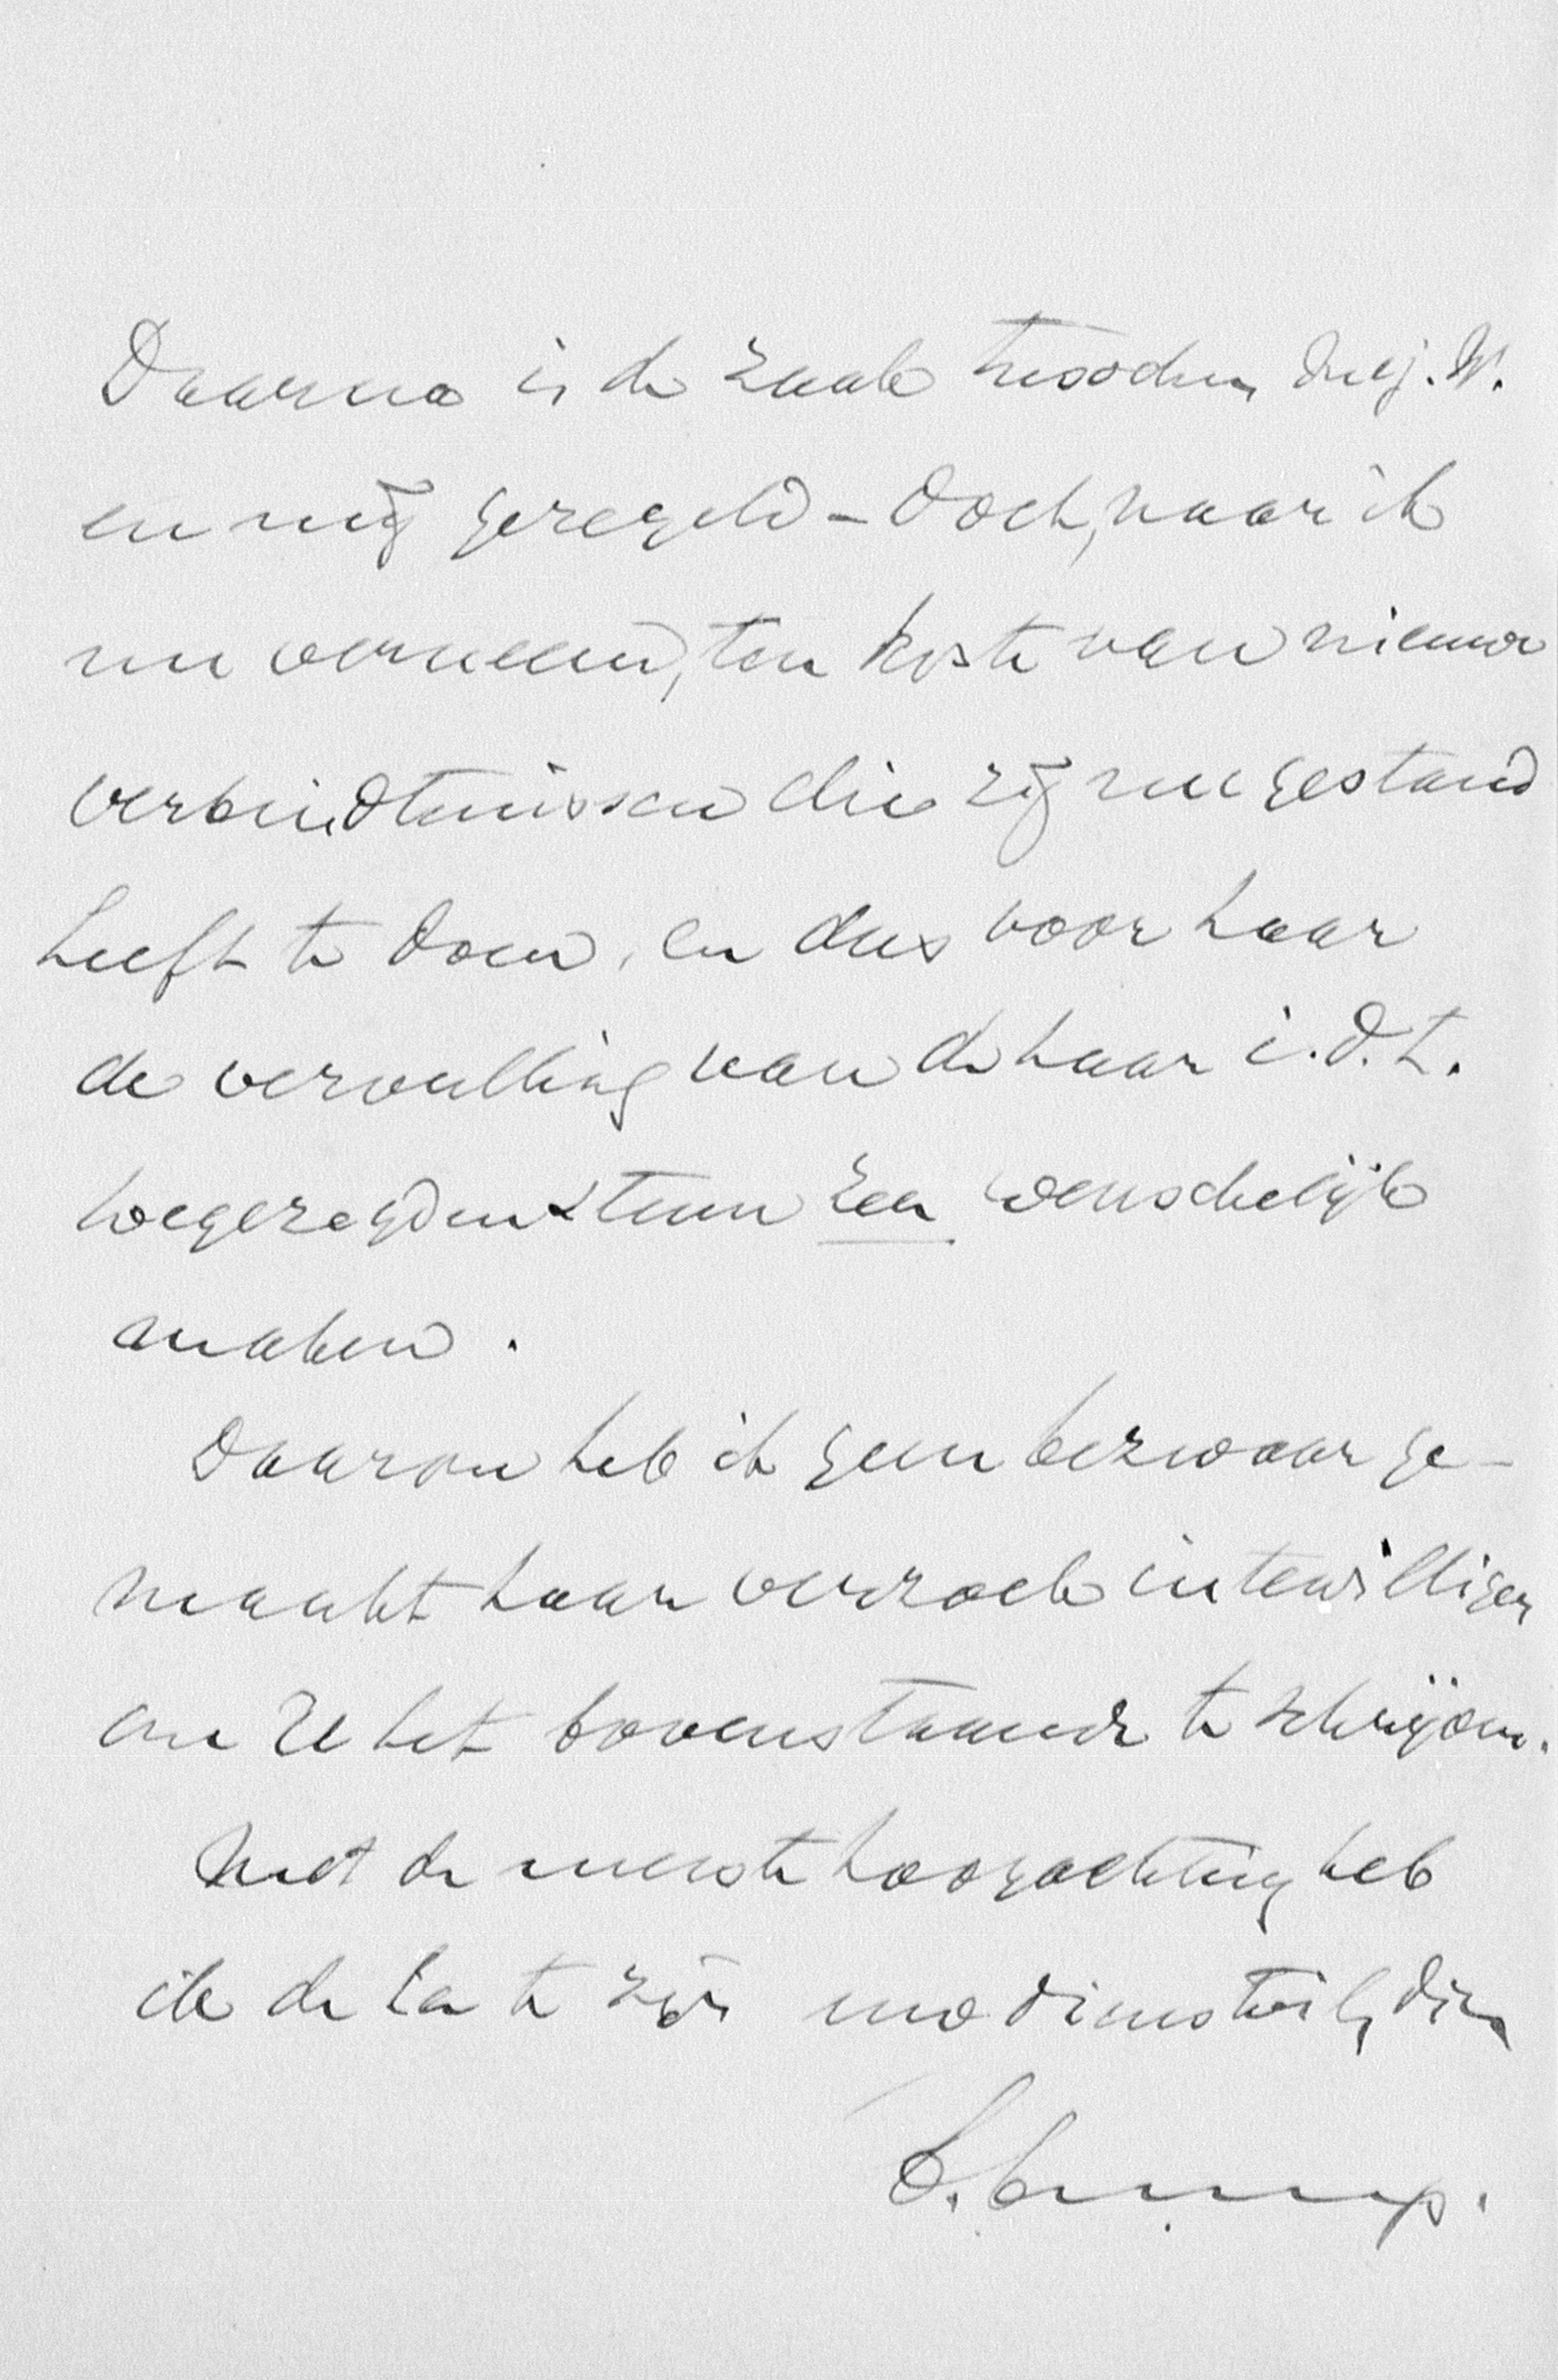 Daarna is de zaak tusschen Mej. W.
en mij geregeld – doch, naar ik
nu verneem, ten koste van nieuwe
verbindtenissen die zij nu gestand
heeft te doen, en dus voor haar
de vervulling van de haar i.d.t.
toegezegden steun zeer wenschelijk
maken.
Daarom heb ik geen bezwaar ge-
maakt haar verzoek intewilligen
om U het bovenstaande te schrijven.
Met de meeste hoogachting heb
ik de eer te zijn uw dienstw. dr.